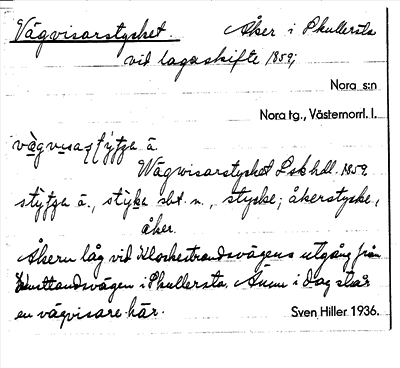 Vägvisarstycket. Åker i Skullersta
vid lagaskifte 1859;
Nora s:n
Nora tg., Västernorrl. l.
Wägvisarstycket Lskhdl. 1859
sbt. n., stycke; åkerstycke,
åker.
Åkern låg vid Klockestrandsvägens utgång från
Kustlandsvägen i Skullersta. Ännu i dag står
en vägvisare här.
Sven Hiller 1936.